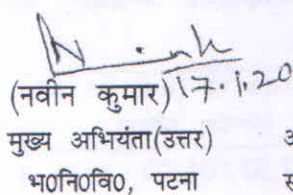 (नवीन कुमार) 17.1.20
मुख्य अभियंता(उत्तर)
भ0नि0वि0, पटना